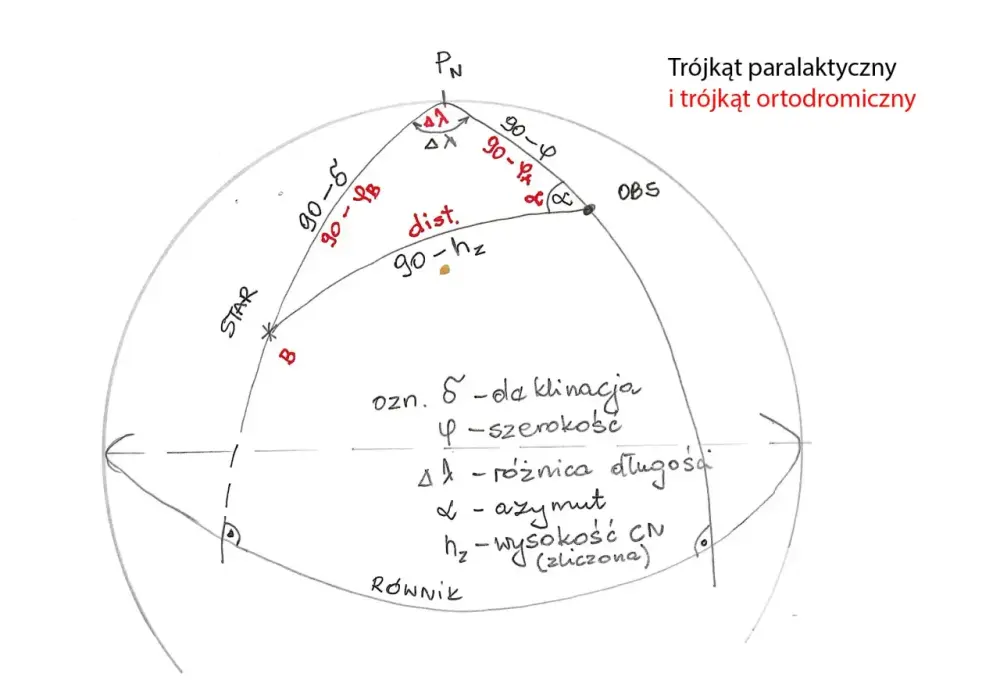 Trójkąt paralaktyczny
i trójkąt ortodromiczny
PN
Δλ
Δλ
90-φ
90-φA
α
α
OBS
90-δ
90-φB
dist.
90-hz
STAR
B
ozn. δ - deklinacja
φ - szerokość
Δλ - różnica długości
α - azymut
hz - wysokość CN
(zliczona)
RÓWNIK